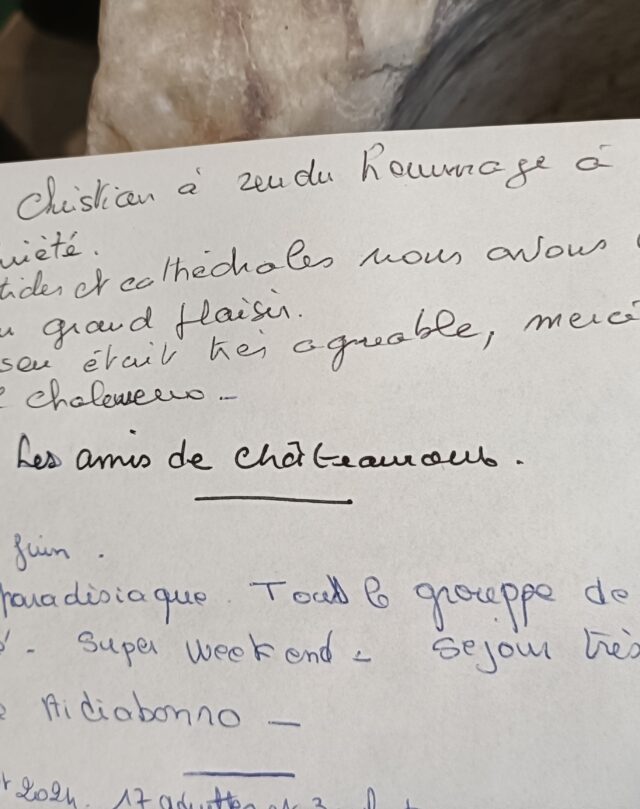 Christian à rendu hommage à
uiété.
tides et cathédrales nous avons
grand plaisir.
était très agréable, merci
chaleureux -
Les amis de
Juin .
paradisiaque. Tout le grouppe de
- Super week end - Sejour très
Aidiabonno -
2024. 17 et 3